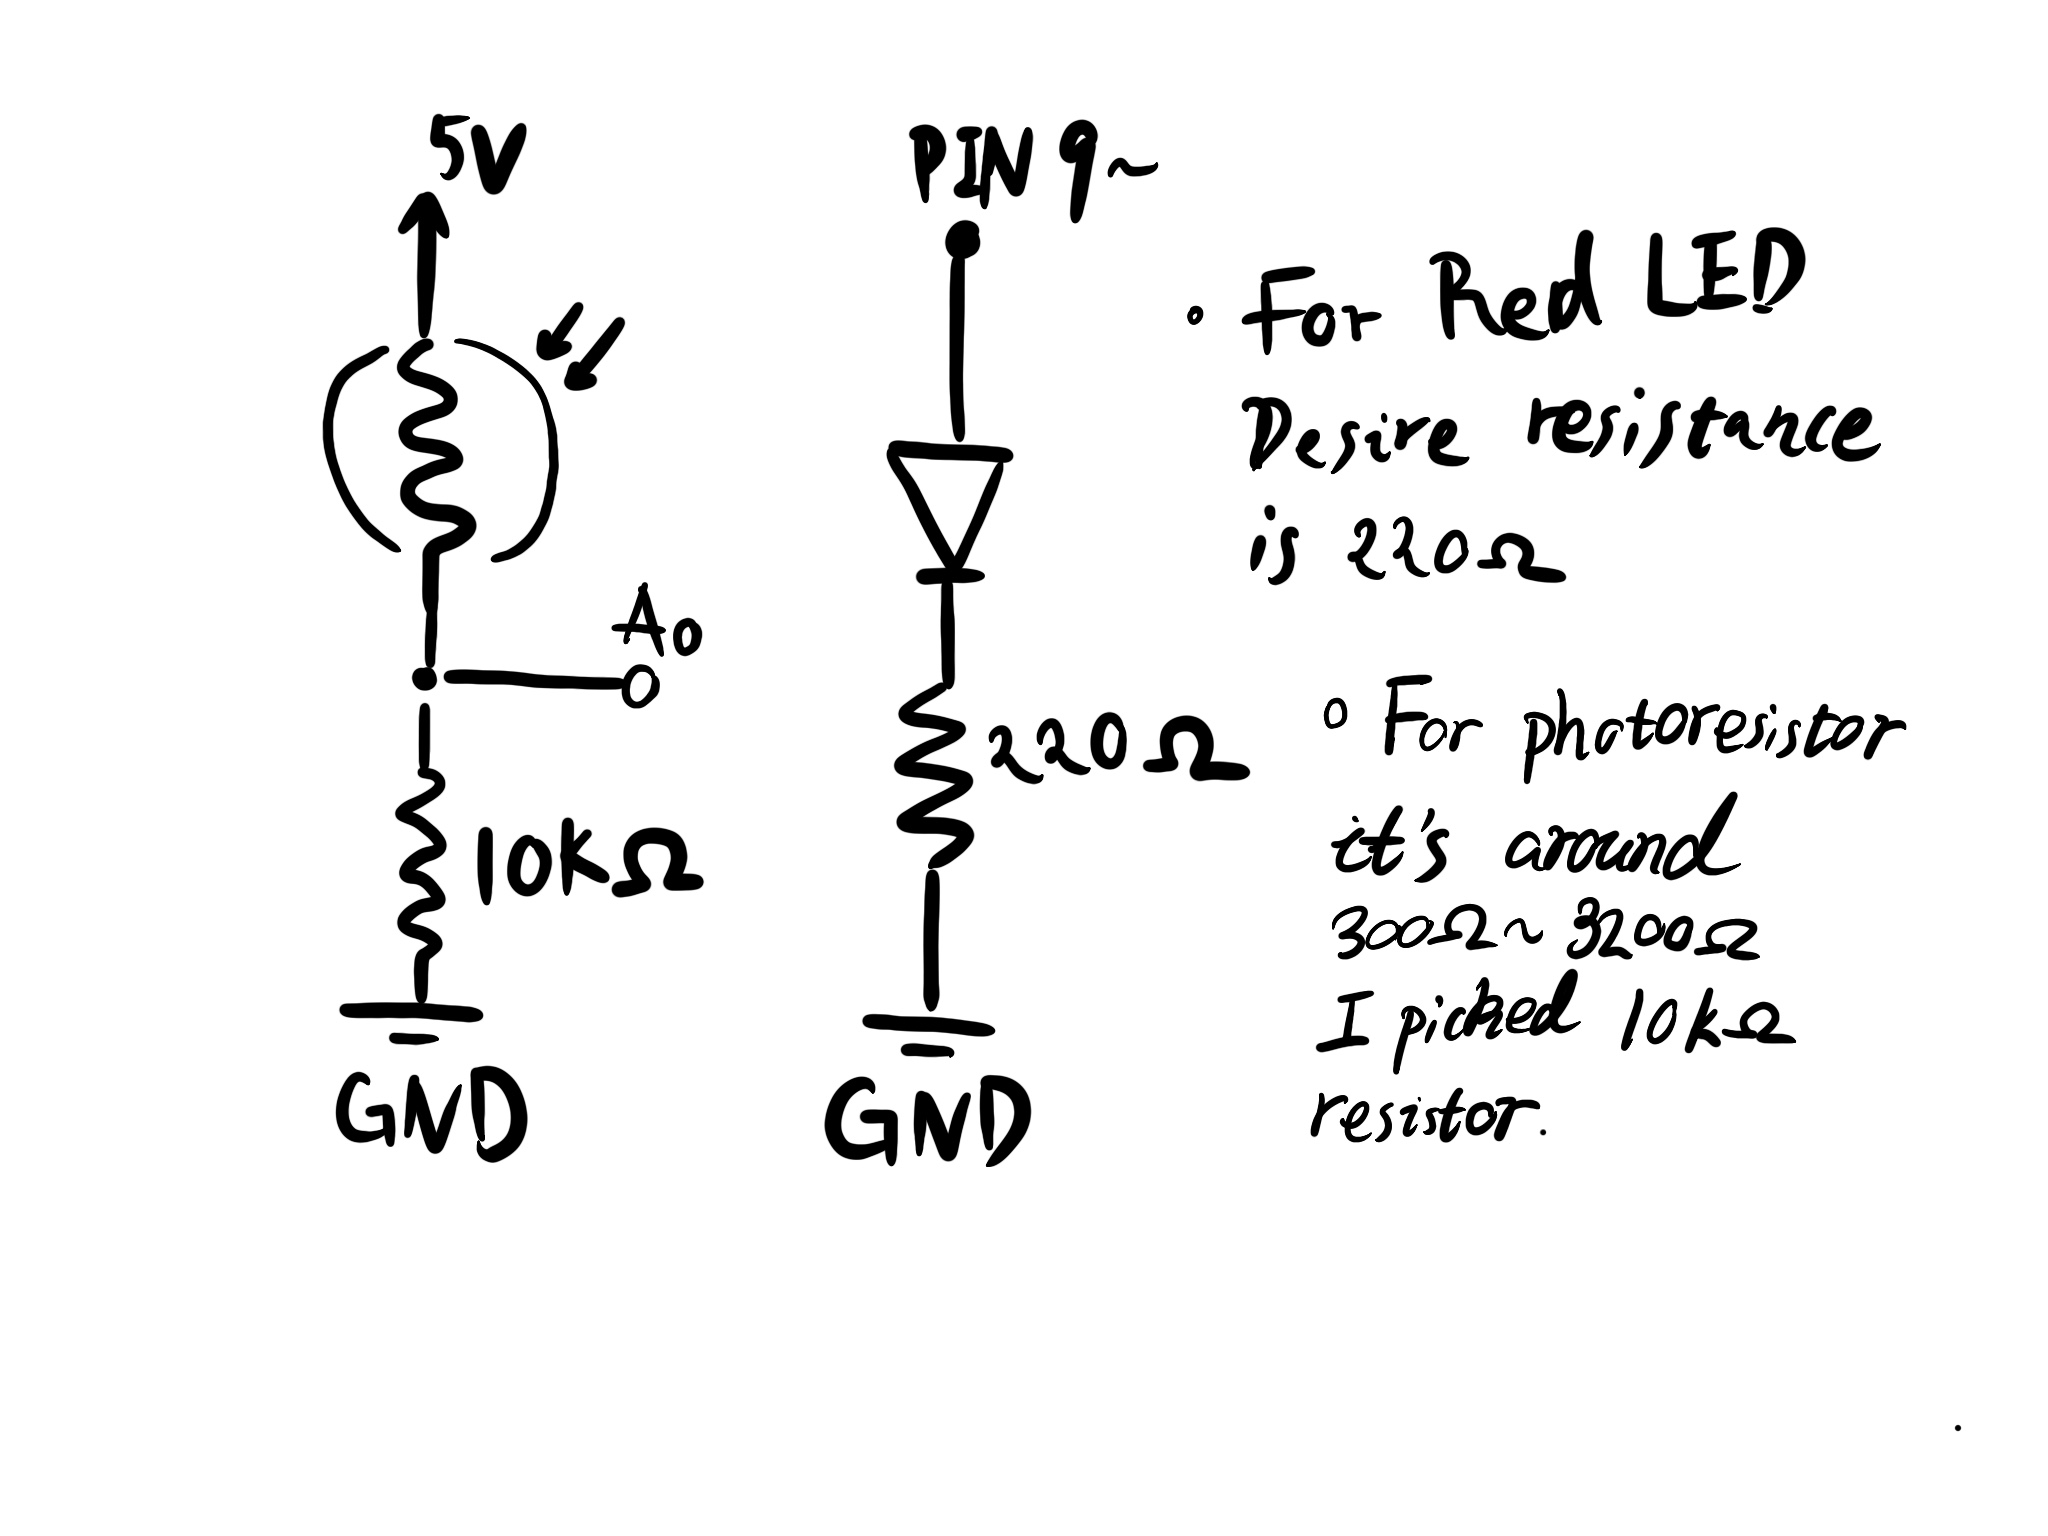 5V
A0
10kΩ
GND
PIN 9~
220Ω
GND
For Red LED
Desire resistance
is 220Ω
For photoresistor
it's around
300Ω~3200Ω
I picked 10kΩ
resistor.